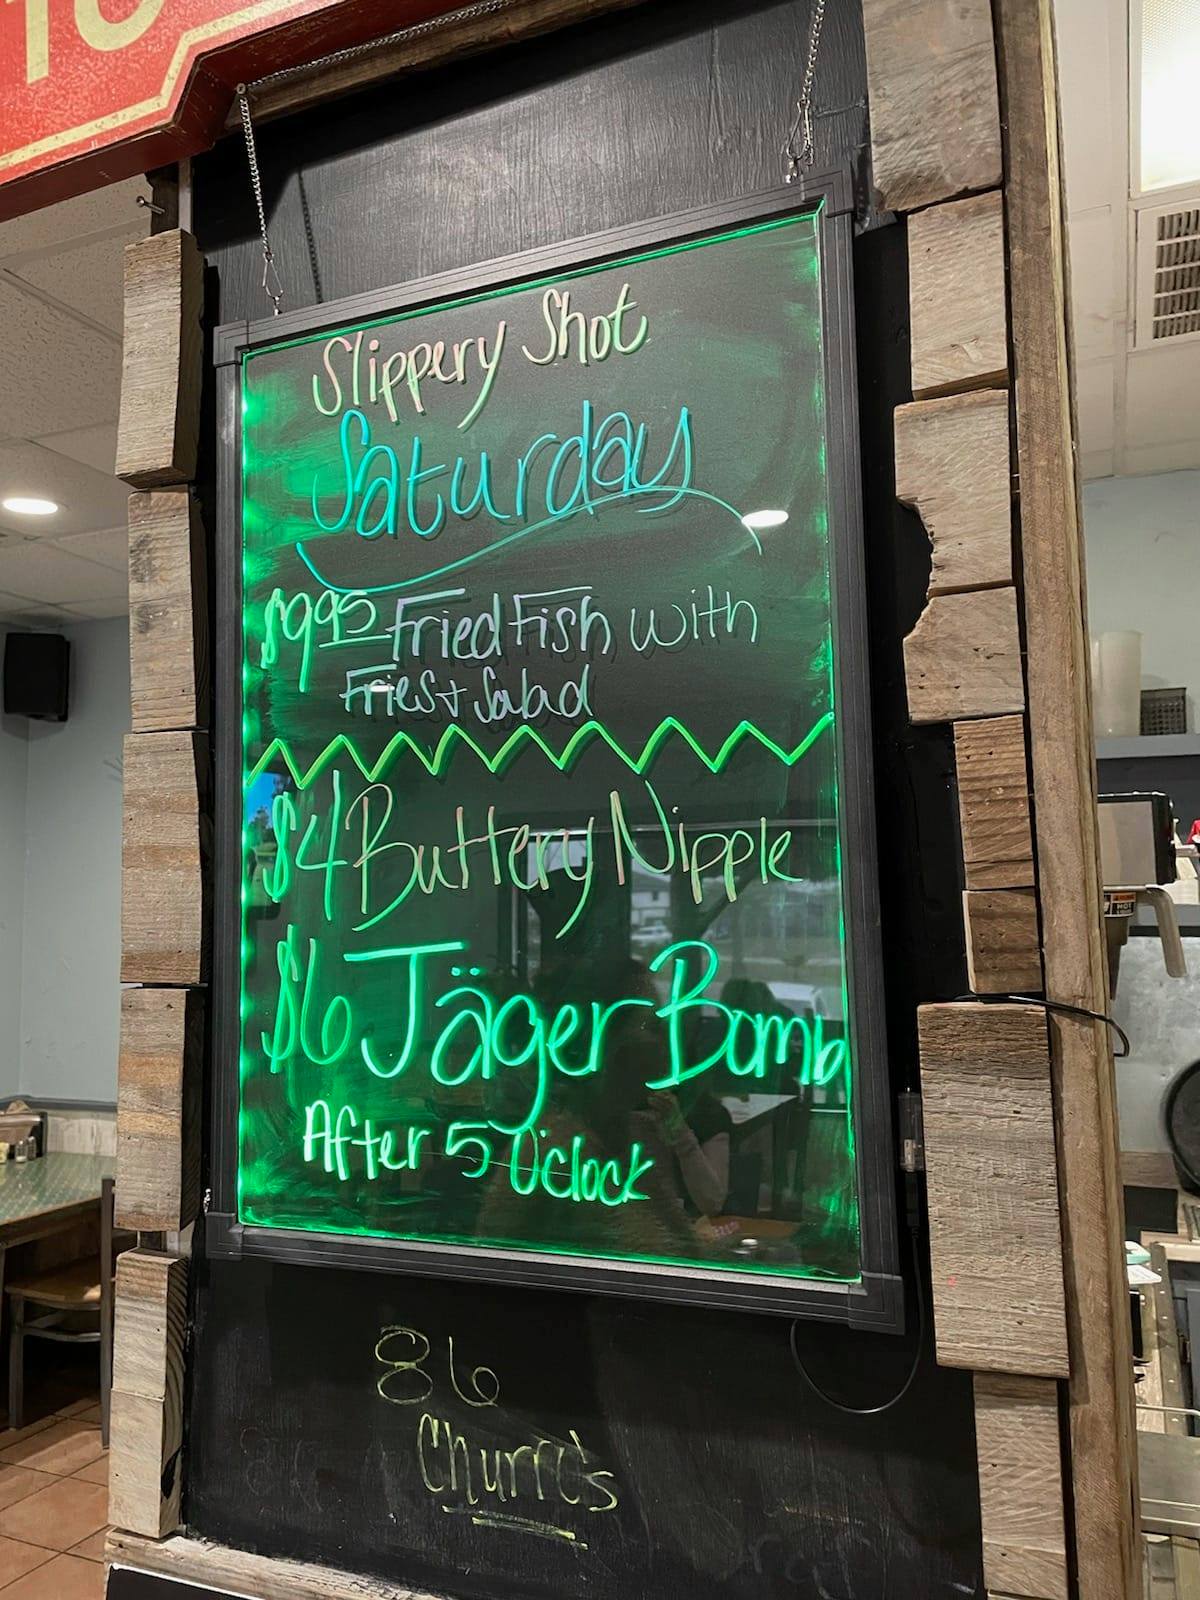 Slippery Shot
Saturday
$9.95 Fried Fish with
Fries + Salad
$4 Buttery Nipple
$6 Jäger Bomb
After 5 O'clock
86
Churro's